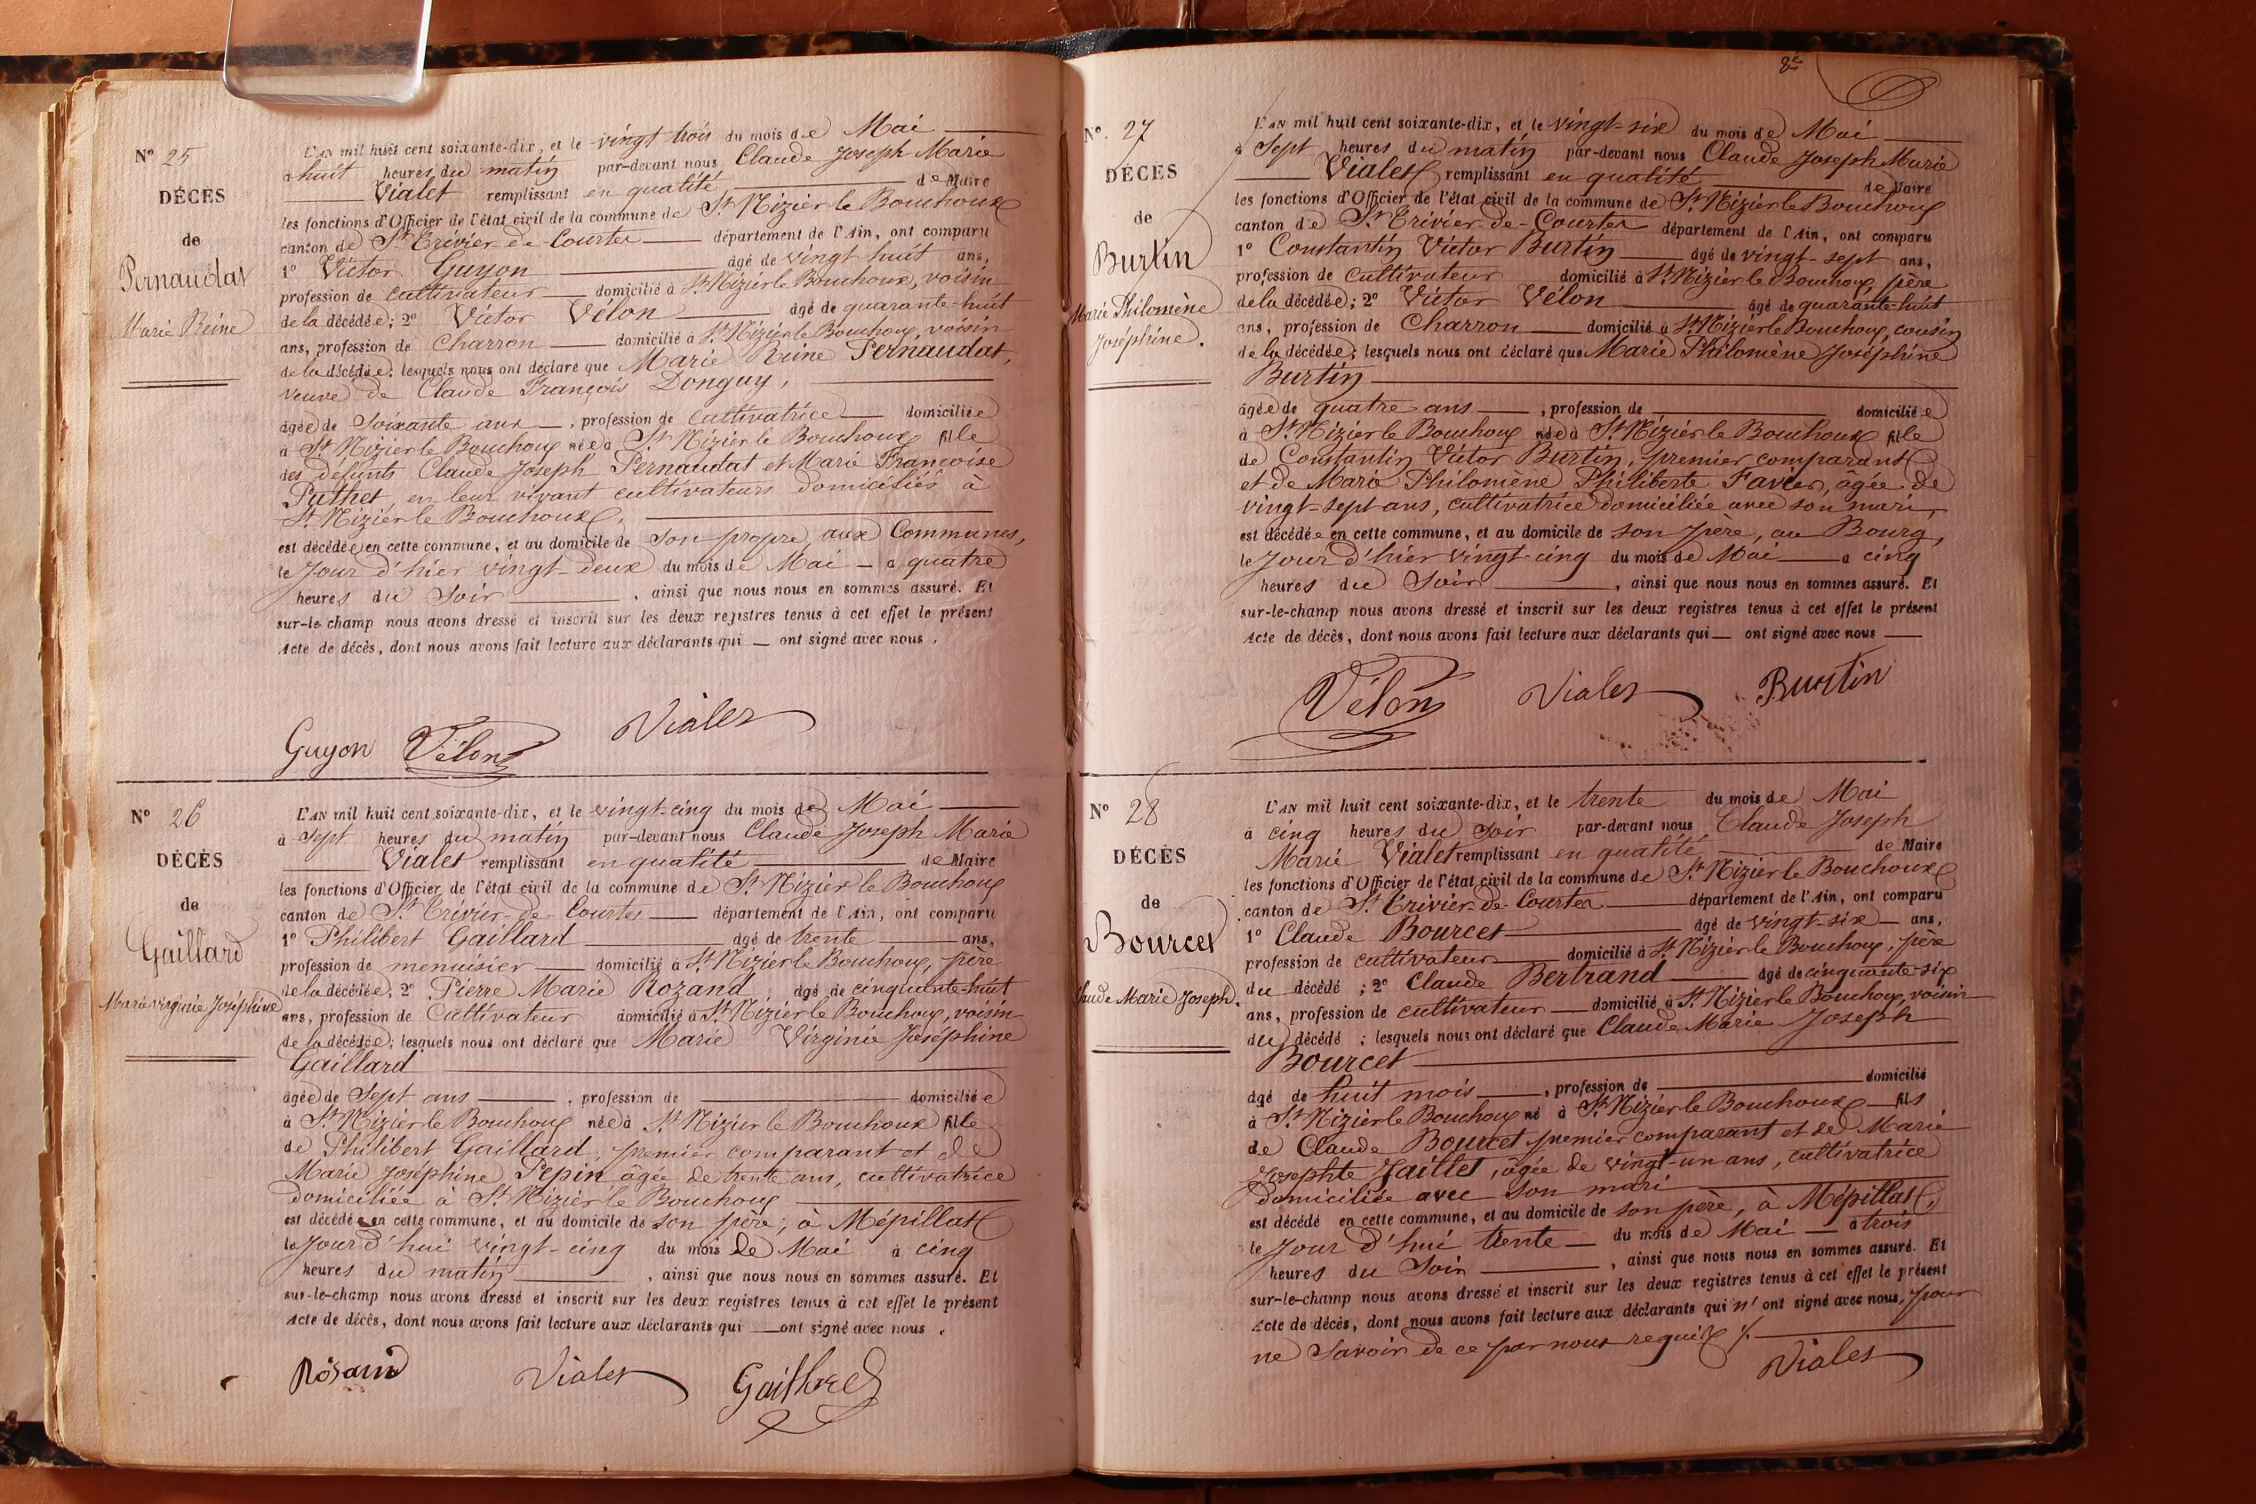 Nº 25
DÉCÈS
de
Pernaudat
Marie Reine
L'AN mil huit cent soixante-dix, et le vingt trois du mois de Mai
à huit heures du matin par-devant nous Claude Joseph Marie
Vialet remplissant en qualité de Maire
les fonctions d'Officier de l'état civil de la commune de St Nizier le Bouchoux
canton de St Trivier-de-Courtes département de l'Ain, ont comparu
1º Victor Guyon âgé de vingt-huit ans,
profession de cultivateur domicilié à St Nizier le Bouchoux, voisin
de la décédée; 2º Victor Vélon âgé de quarante-huit
ans, profession de Charron domicilié à St Nizier le Bouchoux, voisin
de la décédée; lesquels nous ont déclaré que Marie Reine Pernaudat,
veuve de Claude François Donguy,
âgée de Soixante ans, profession de Cultivatrice domiciliée
à St Nizier le Bouchoux née à St Nizier le Bouchoux fille
des défunts Claude Joseph Pernaudat et Marie Françoise
Puthet, en leur vivant cultivateurs domiciliés à
St Nizier le Bouchoux,
est décédée en cette commune, et au domicile de son propre, aux Communes,
le Jour d'hier vingt-deux du mois de Mai à quatre
heures du Soir, ainsi que nous nous en sommes assuré. Et
sur-le-champ nous avons dressé et inscrit sur les deux registres tenus à cet effet le présent
Acte de décès, dont nous avons fait lecture aux déclarants qui ont signé avec nous.
Guyon Vélon Vialet
Nº 26
DÉCÈS
de
Gaillard
Marie Virginie Joséphine
L'AN mil huit cent soixante-dix, et le vingt-cinq du mois de Mai
à Sept heures du matin par-devant nous Claude Joseph Marie
Vialet remplissant en qualité de Maire
les fonctions d'Officier de l'état civil de la commune de St Nizier le Bouchoux
canton de St Trivier-de-Courtes département de l'Ain, ont comparu
1º Philibert Gaillard âgé de trente ans,
profession de menuisier domicilié à St Nizier le Bouchoux, père
de la décédée, 2º Pierre Marie Rozand âgé de cinquante-huit
ans, profession de Cultivateur domicilié à St Nizier le Bouchoux, voisin
de la décédée; lesquels nous ont déclaré que Marie Virginie Joséphine
Gaillard
âgée de Sept ans, profession de domiciliée
à St Nizier le Bouchoux née à St Nizier le Bouchoux fille
de Philibert Gaillard, premier comparant et de
Marie Joséphine Pepin, âgée de trente ans, cultivatrice
domiciliée à St Nizier le Bouchoux
est décédée en cette commune, et au domicile de son père, à Mépillat
le Jour d'hui vingt-cinq du mois de Mai à cinq
heures du matin, ainsi que nous nous en sommes assuré. Et
sur-le-champ nous avons dressé et inscrit sur les deux registres tenus à cet effet le présent
Acte de décès, dont nous avons fait lecture aux déclarants qui ont signé avec nous.
Rosand Vialet Gaillard
Nº 27
DÉCÈS
de
Burtin
Marie Philomène
Joséphine.
L'AN mil huit cent soixante-dix, et le vingt-six du mois de Mai
à Sept heures du matin par-devant nous Claude Joseph Marie
Vialet remplissant en qualité de Maire
les fonctions d'Officier de l'état civil de la commune de St Nizier le Bouchoux
canton de St Trivier-de-Courtes département de l'Ain, ont comparu
1º Constantin Victor Burtin âgé de vingt-sept ans,
profession de Cultivateur domicilié à St Nizier le Bouchoux, père
de la décédée; 2º Victor Vélon âgé de quarante-huit
ans, profession de Charron domicilié à St Nizier le Bouchoux, cousin
de la décédée; lesquels nous ont déclaré que Marie Philomène Joséphine
Burtin
âgée de quatre ans, profession de domiciliée
à St Nizier le Bouchoux née à St Nizier le Bouchoux fille
de Constantin Victor Burtin, premier comparant
et de Marie Philomène Philiberte Favier, âgée de
vingt-sept ans, cultivatrice domiciliée avec son mari,
est décédée en cette commune, et au domicile de son père, au Bourg,
le Jour d'hier vingt-cinq du mois de Mai à cinq
heures du Soir, ainsi que nous nous en sommes assuré. Et
sur-le-champ nous avons dressé et inscrit sur les deux registres tenus à cet effet le présent
Acte de décès, dont nous avons fait lecture aux déclarants qui ont signé avec nous
Vélon Vialet Burtin
Nº 28
DÉCÈS
de
Bourcet
Claude Marie Joseph.
L'AN mil huit cent soixante-dix, et le trente du mois de Mai
à cinq heures du Soir par-devant nous Claude Joseph
Marie Vialet remplissant en qualité de Maire
les fonctions d'Officier de l'état civil de la commune de St Nizier le Bouchoux
canton de St Trivier-de-Courtes département de l'Ain, ont comparu
1º Claude Bourcet âgé de vingt-six ans,
profession de cultivateur domicilié à St Nizier le Bouchoux, père
du décédé; 2º Claude Bertrand âgé de cinquante-six
ans, profession de cultivateur domicilié à St Nizier le Bouchoux, voisin
du décédé; lesquels nous ont déclaré que Claude Marie Joseph
Bourcet
âgé de huit mois, profession de domicilié
à St Nizier le Bouchoux né à St Nizier le Bouchoux fils
de Claude Bourcet premier comparant et de Marie
Josephte Jaillet, âgée de vingt-un ans, cultivatrice
domiciliée avec son mari
est décédé en cette commune, et au domicile de son père, à Mépillat,
le Jour d'hui trente du mois de Mai à trois
heures du Soir, ainsi que nous nous en sommes assuré. Et
sur-le-champ nous avons dressé et inscrit sur les deux registres tenus à cet effet le présent
Acte de décès, dont nous avons fait lecture aux déclarants qui n'ont signé avec nous, pour
ne Savoir de ce par nous requis
Vialet